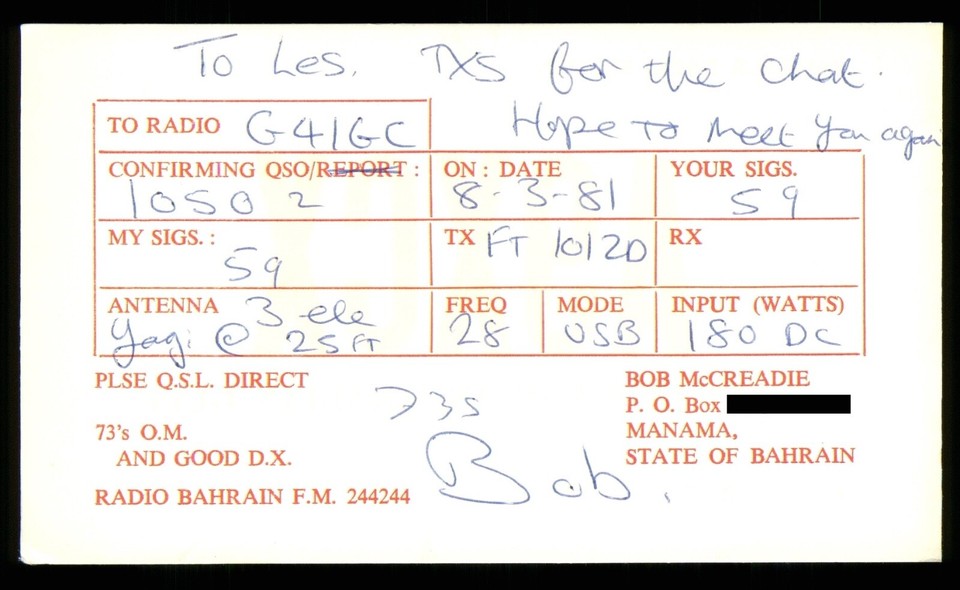 To Les. TXS for the chat.
Hope to meet you again
TO RADIO G4IGC
CONFIRMING QSO/REPORT : ON : DATE YOUR SIGS.
1050 Z 8-3-81 59
MY SIGS. : TX FT 101ZD RX
59
ANTENNA 3 ele FREQ MODE INPUT (WATTS)
Yagi @ 25 FT 28 USB 180 DC
PLSE Q.S.L. DIRECT BOB McCREADIE
73s P. O. Box
73's O.M. MANAMA,
AND GOOD D.X. STATE OF BAHRAIN
Bob.
RADIO BAHRAIN F.M. 244244